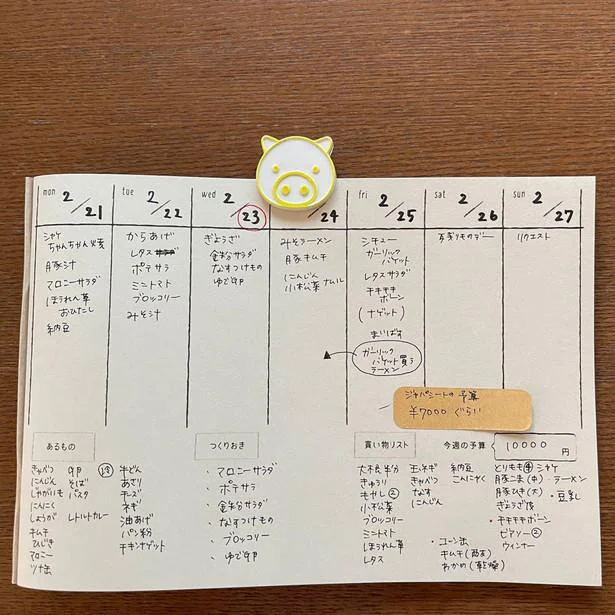 mon 2/21
シャケ
ちゃんちゃん焼
豚汁
マロニーサラダ
ほうれん草
おひたし
納豆
tue 2/22
からあげ
レタス
ポテサラ
ミニトマト
ブロッコリー
みそ汁
wed 2/23
ぎょうざ
なすつけもの
ゆで卵
2/24
みそラーメン
豚キムチ
にんじん
小松菜 ナムル
fri 2/25
シチュー
ガーリック
バゲット
レタスサダ
チキチキ
ボーン
(ナゲット)
まいばす
ガーリック
バゲット買う
ラーメン
sat 2/26
sun 2/27
リクエスト
ジャパンミートの予算
¥7000 ぐらい
あるもの
きゃべつ 卵
にんじん そば
じゃがいも パスタ
にんにく
しょうが レトルトカレー
キムチ
ひじき
マロニー
ツナ缶
冷
牛どん
あさり
チーズ
ネギ
油あげ
パン粉
チキンナゲット
つくりおき
・マロニーサラダ
・ポテサラ
・なすつけもの
・ブロッコリー
・ゆで卵
買い物リスト
大根半分 玉ネギ 納豆
きゅうり きゃべつ こんにゃく
モヤシ② なす
小松菜 にんじん
ブロッコリー
ミニトマト
ほうれん草
レタス
・コーン缶
キムチ(
わかめ(乾燥)
今週の予算 10000 円
とりもも④ シャケ
豚こま(中) ・ラーメン
豚ひき(大) ・豆乳
ぎょうざ皮
・チキチキボーン
ピアソー②
ウィンナー